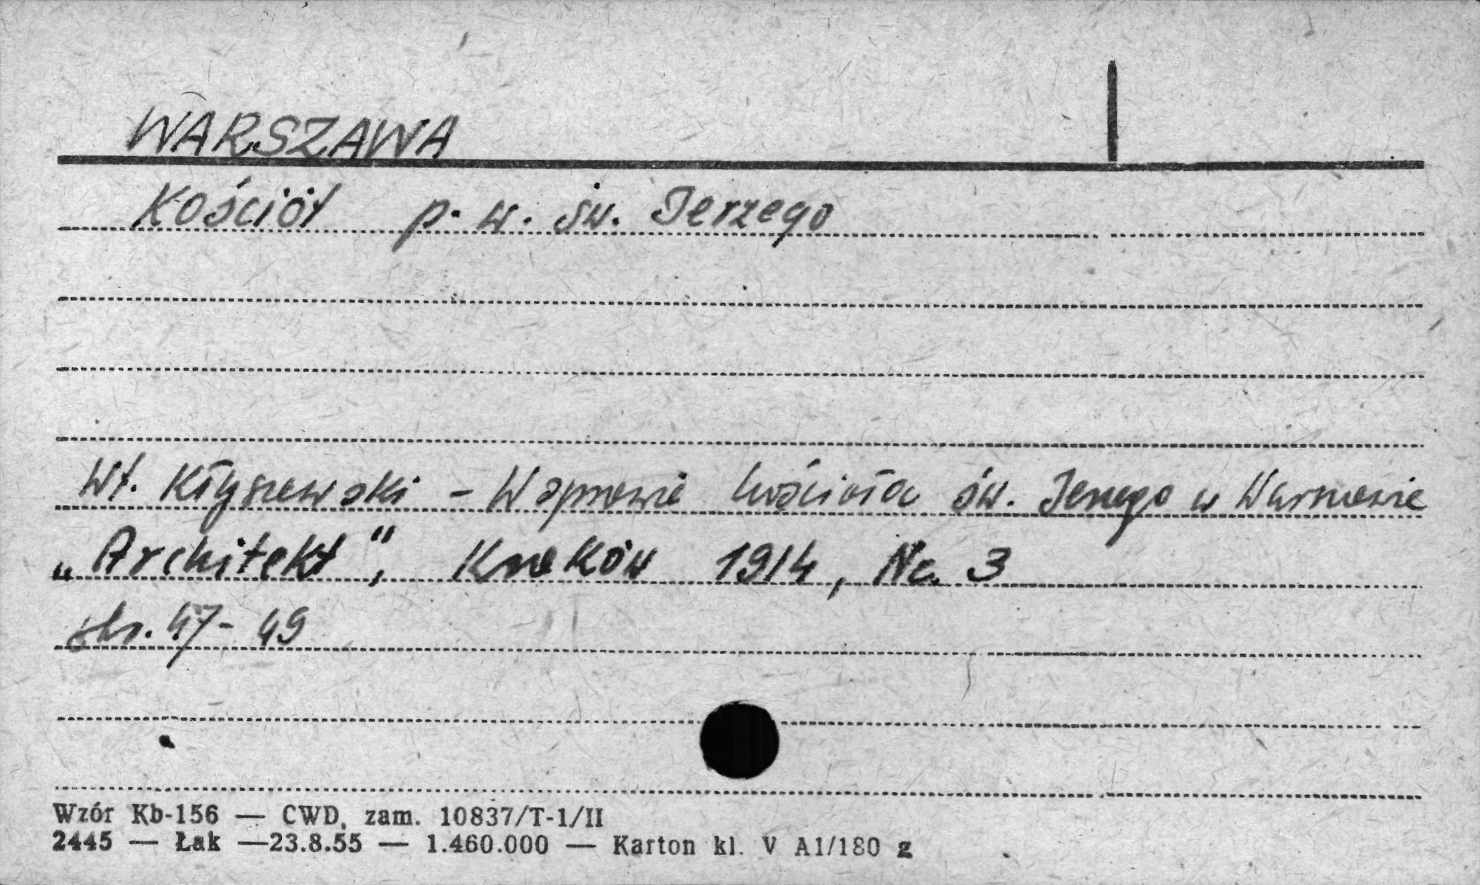 WARSZAWA
Kościół p. w. św. Jerzego
Wł. Kłyszewski – W sprawie kościoła św. Jerzego w Warszawie
„Architekt", Kraków 1914, Nr. 3
str. 47-49
Wzór Kb-156 — CWD, zam. 10837/T-1/II
2445 — Łak —23.8.55 — 1.460.000 — Karton kl. V A1/180 g